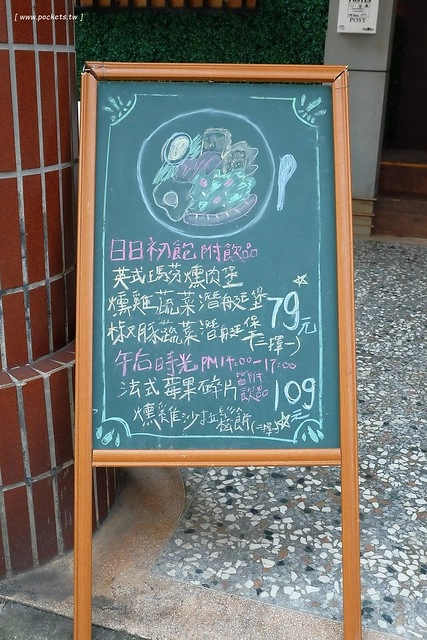 [ www.pockets.tw ]
POST
日日初飽 附飲品
英式瑪芬燻肉堡
燻雞蔬菜潛艇堡 79元
椒豚蔬菜潛艇堡(三擇一)
午后時光 PM14:00-17:00
法式莓果碎片 皆附飲品 109元
燻雞沙拉鬆餅(二擇一)